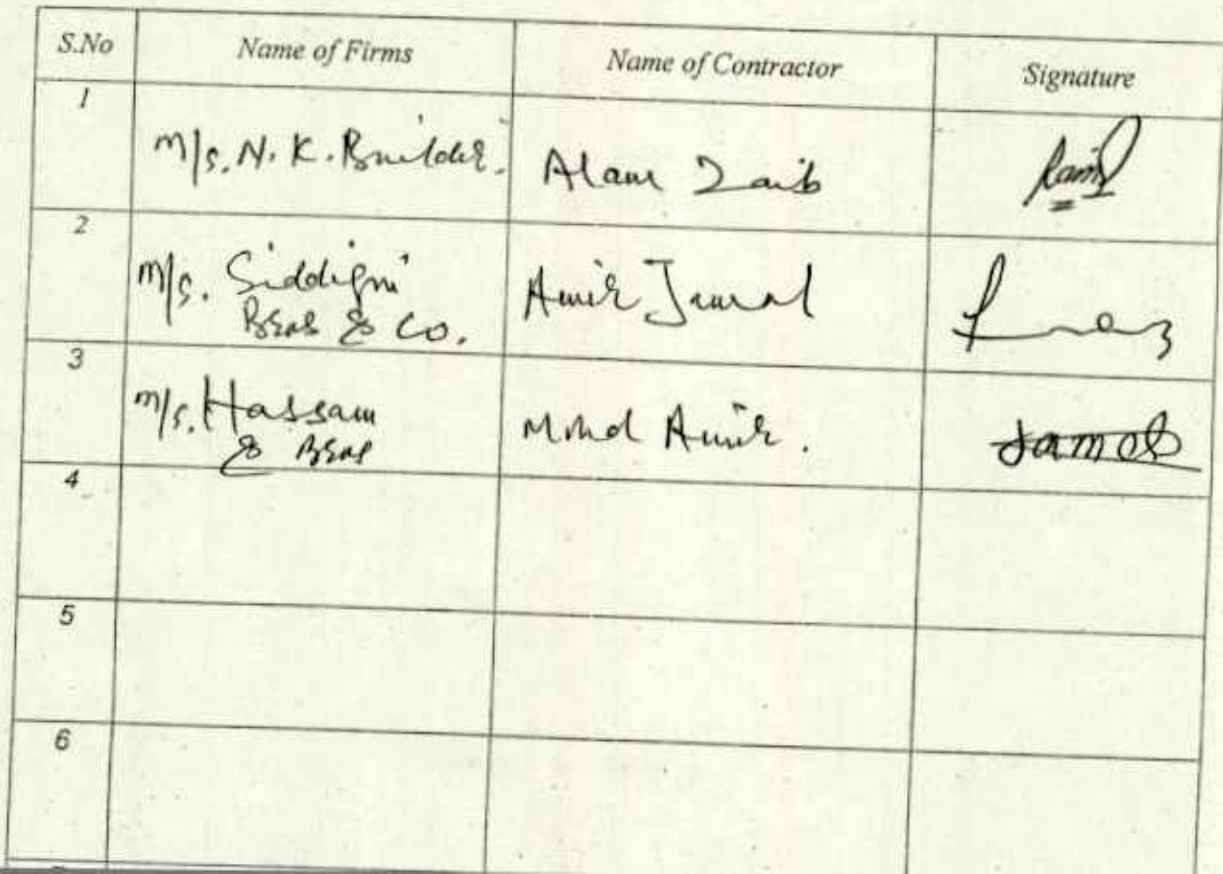 S.No Name of Firms Name of Contractor Signature
1
M/s. N. K. Builder. Alam Zaib
2
M/s. Siddiqui Amir Jamal
Bros & Co.
3
M/s. Hassam Mohd Amir.
& Bros
4
5
6